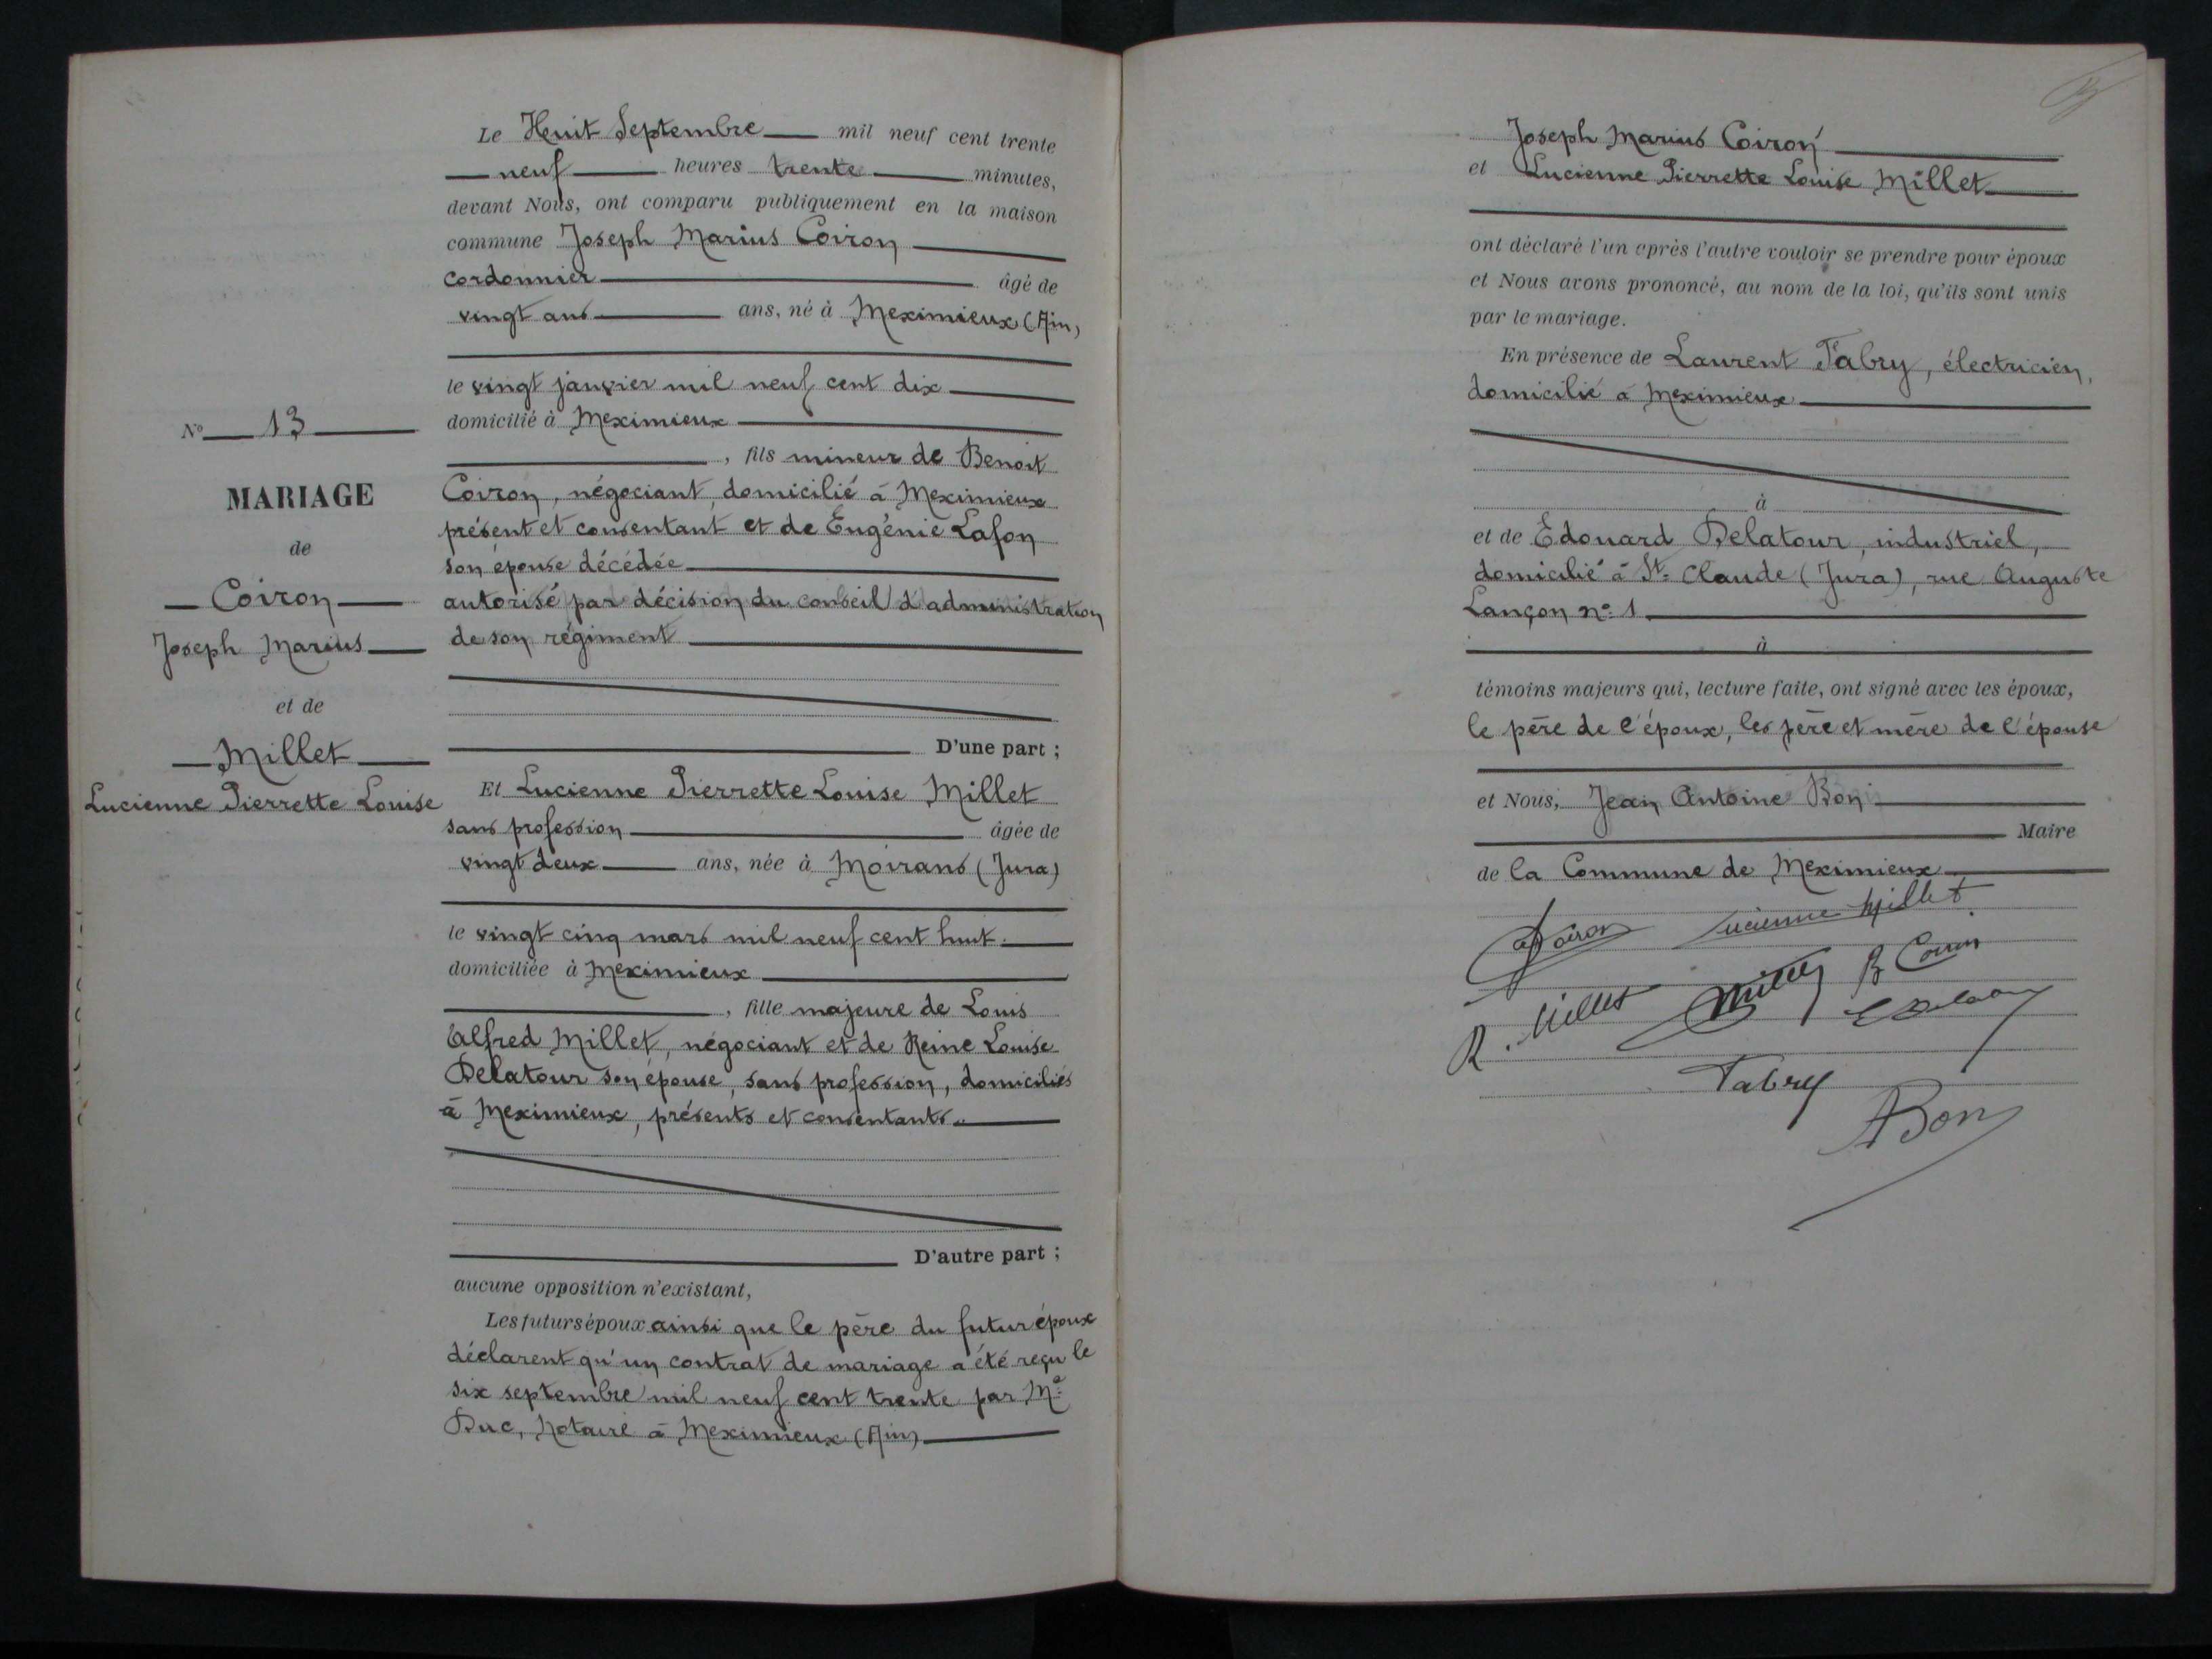 Le Huit Septembre mil neuf cent trente
neuf heures trente minutes,
devant Nous, ont comparu publiquement en la maison
commune Joseph Marius Coiron
cordonnier âgé de
vingt ans ans, né à Meximieux (Ain)
le vingt janvier mil neuf cent dix
domicilié à Meximieux
, fils mineur de Benoit
Coiron, négociant, domicilié à Meximieux
présent et consentant et de Eugénie Lafon
son épouse décédée
autorisé par décision du conseil d'administration
de son régiment
D'une part ;
N° 13
MARIAGE
de
Coiron
Joseph Marius
et de
Millet
Lucienne Pierrette Louise
Et Lucienne Pierrette Louise Millet
sans profession âgée de
vingt deux ans, née à Moirans (Jura)
le vingt cinq mars mil neuf cent huit.
domiciliée à Meximieux
, fille majeure de Louis
Alfred Millet, négociant et de Reine Louise
Delatour son épouse, sans profession, domiciliés
à Meximieux, présents et consentants.
D'autre part ;
aucune opposition n'existant,
Les futurs époux ainsi que le père du futur époux
déclarent qu'un contrat de mariage a été reçu le
six septembre mil neuf cent trente par Me
Duc, Notaire à Meximieux (Ain)
Joseph Marius Coiron
et Lucienne Pierrette Louise Millet
ont déclaré l'un après l'autre vouloir se prendre pour époux
et Nous avons prononcé, au nom de la loi, qu'ils sont unis
par le mariage.
En présence de Laurent Fabry, électricien,
domicilié à Meximieux
à
et de Edouard Delatour, industriel,
domicilié à St. Claude (Jura), rue Auguste
Lançon no. 1
à
témoins majeurs qui, lecture faite, ont signé avec les époux,
le père de l'époux, les père et mère de l'épouse
et Nous, Jean Antoine Bon
Maire
de la Commune de Meximieux
Coiron Lucienne Millet
R. Millet Millet B Coiron
E Delatour
Fabry
ABon